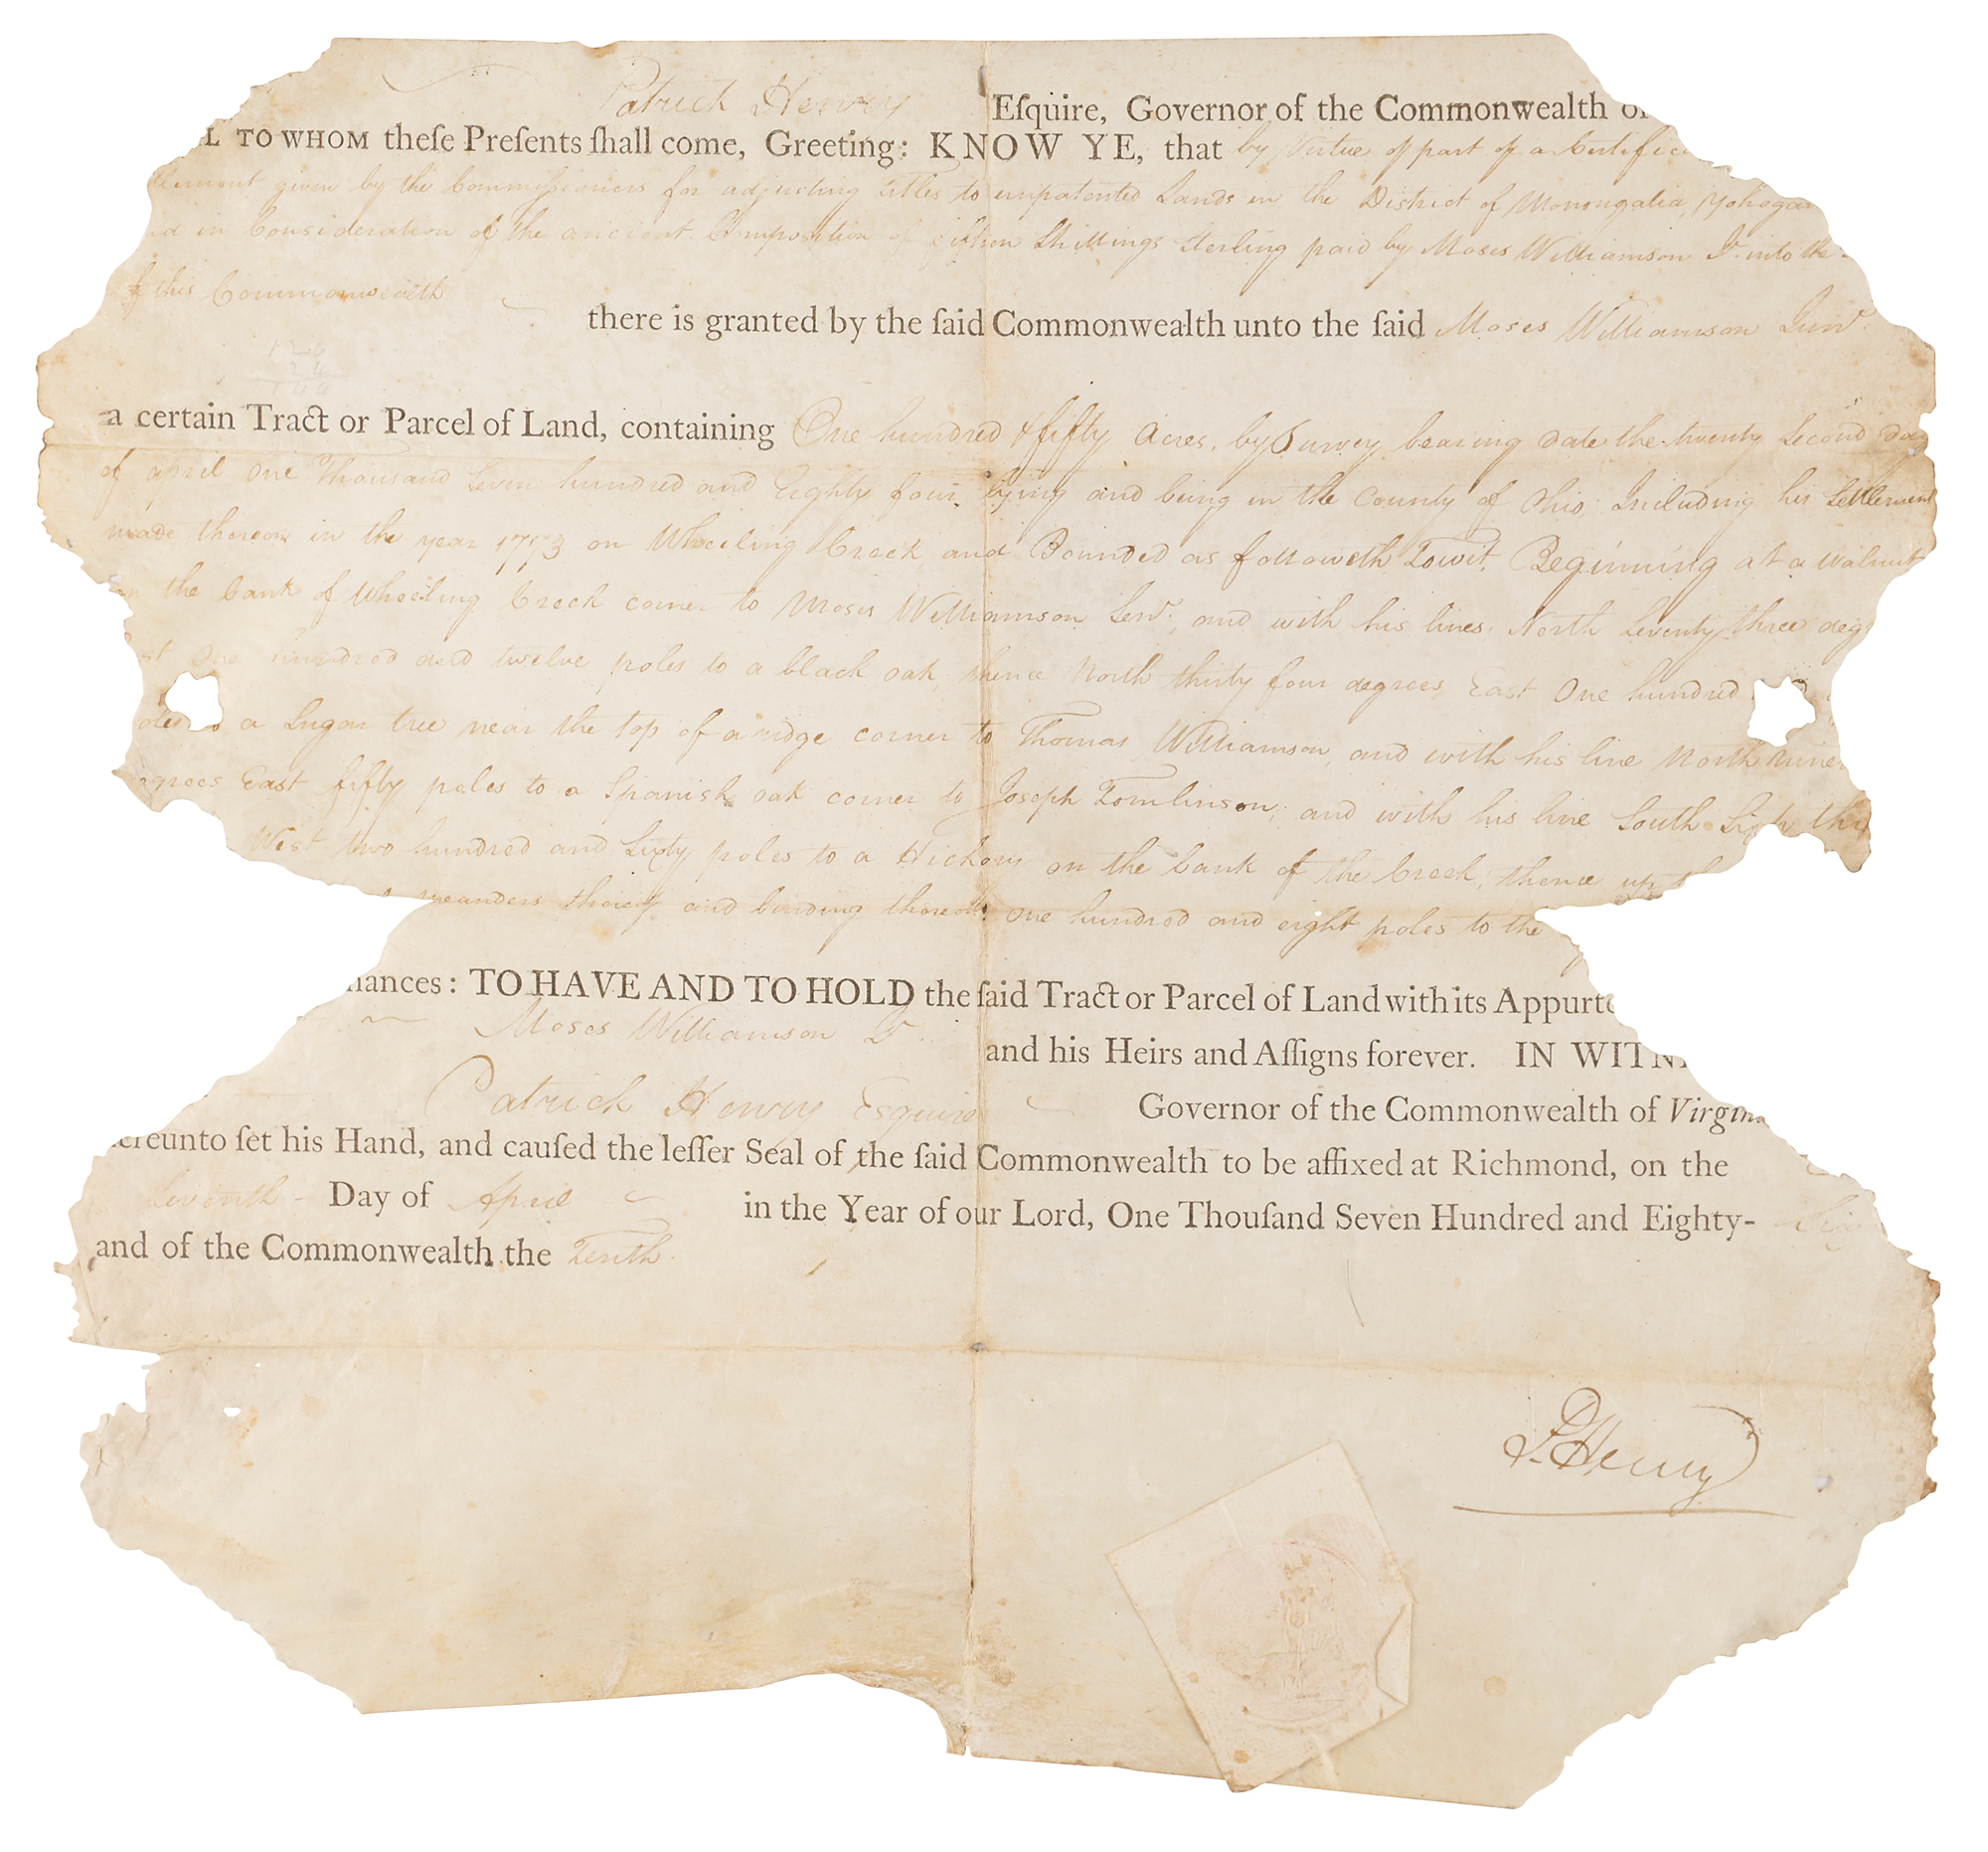 Patrick Henry Eſquire, Governor of the Commonwealth of
L TO WHOM theſe Preſents ſhall come, Greeting: KNOW YE, that by Virtue of part of a Certific
tlement given by the Commissioners for adjusting titles to unpatented Lands in the District of Monongalia, Yohogan
nd in Consideration of the ancient Composition of fifteen Shillings Sterling paid by Moses Williamson Jr. into the
of this Commonwealth
there is granted by the ſaid Commonwealth unto the ſaid Moses Williamson Junr.
a certain Tract or Parcel of Land, containing One hundred & fifty Acres, by Survey bearing date the twenty Second day
of april One Thousand Seven hundred and Eighty four, lying and being in the County of Ohio, Including his Settlement
made thereon in the year 1773 on Wheeling Creek and Bounded as followeth Towit, Beginning at a walnut
on the bank of Wheeling Creek corner to Moses Williamson Senr., and with his lines North Seventy three deg
st One hundred and twelve poles to a black oak, thence North thirty four degrees East One hundred
oles to a Sugar tree near the top of a ridge corner to Thomas Williamson, and with his line North Nine
egrees East fifty poles to a Spanish oak corner to Joseph Tomlinson, and with his line South Sixty thr
West two hundred and Sixty poles to a Hickory on the bank of the Creek, thence up
meanders thereof and binding thereon one hundred and eight poles to the
nances: TO HAVE AND TO HOLD the ſaid Tract or Parcel of Land with its Appurte
Moses Williamson Jr.
and his Heirs and Aſſigns forever. IN WITN
Patrick Henry Esquire Governor of the Commonwealth of Virgin
hereunto ſet his Hand, and cauſed the leſſer Seal of the ſaid Commonwealth to be affixed at Richmond, on the
Seventh Day of April in the Year of our Lord, One Thouſand Seven Hundred and Eighty- Six
and of the Commonwealth the Tenth.
P. Henry